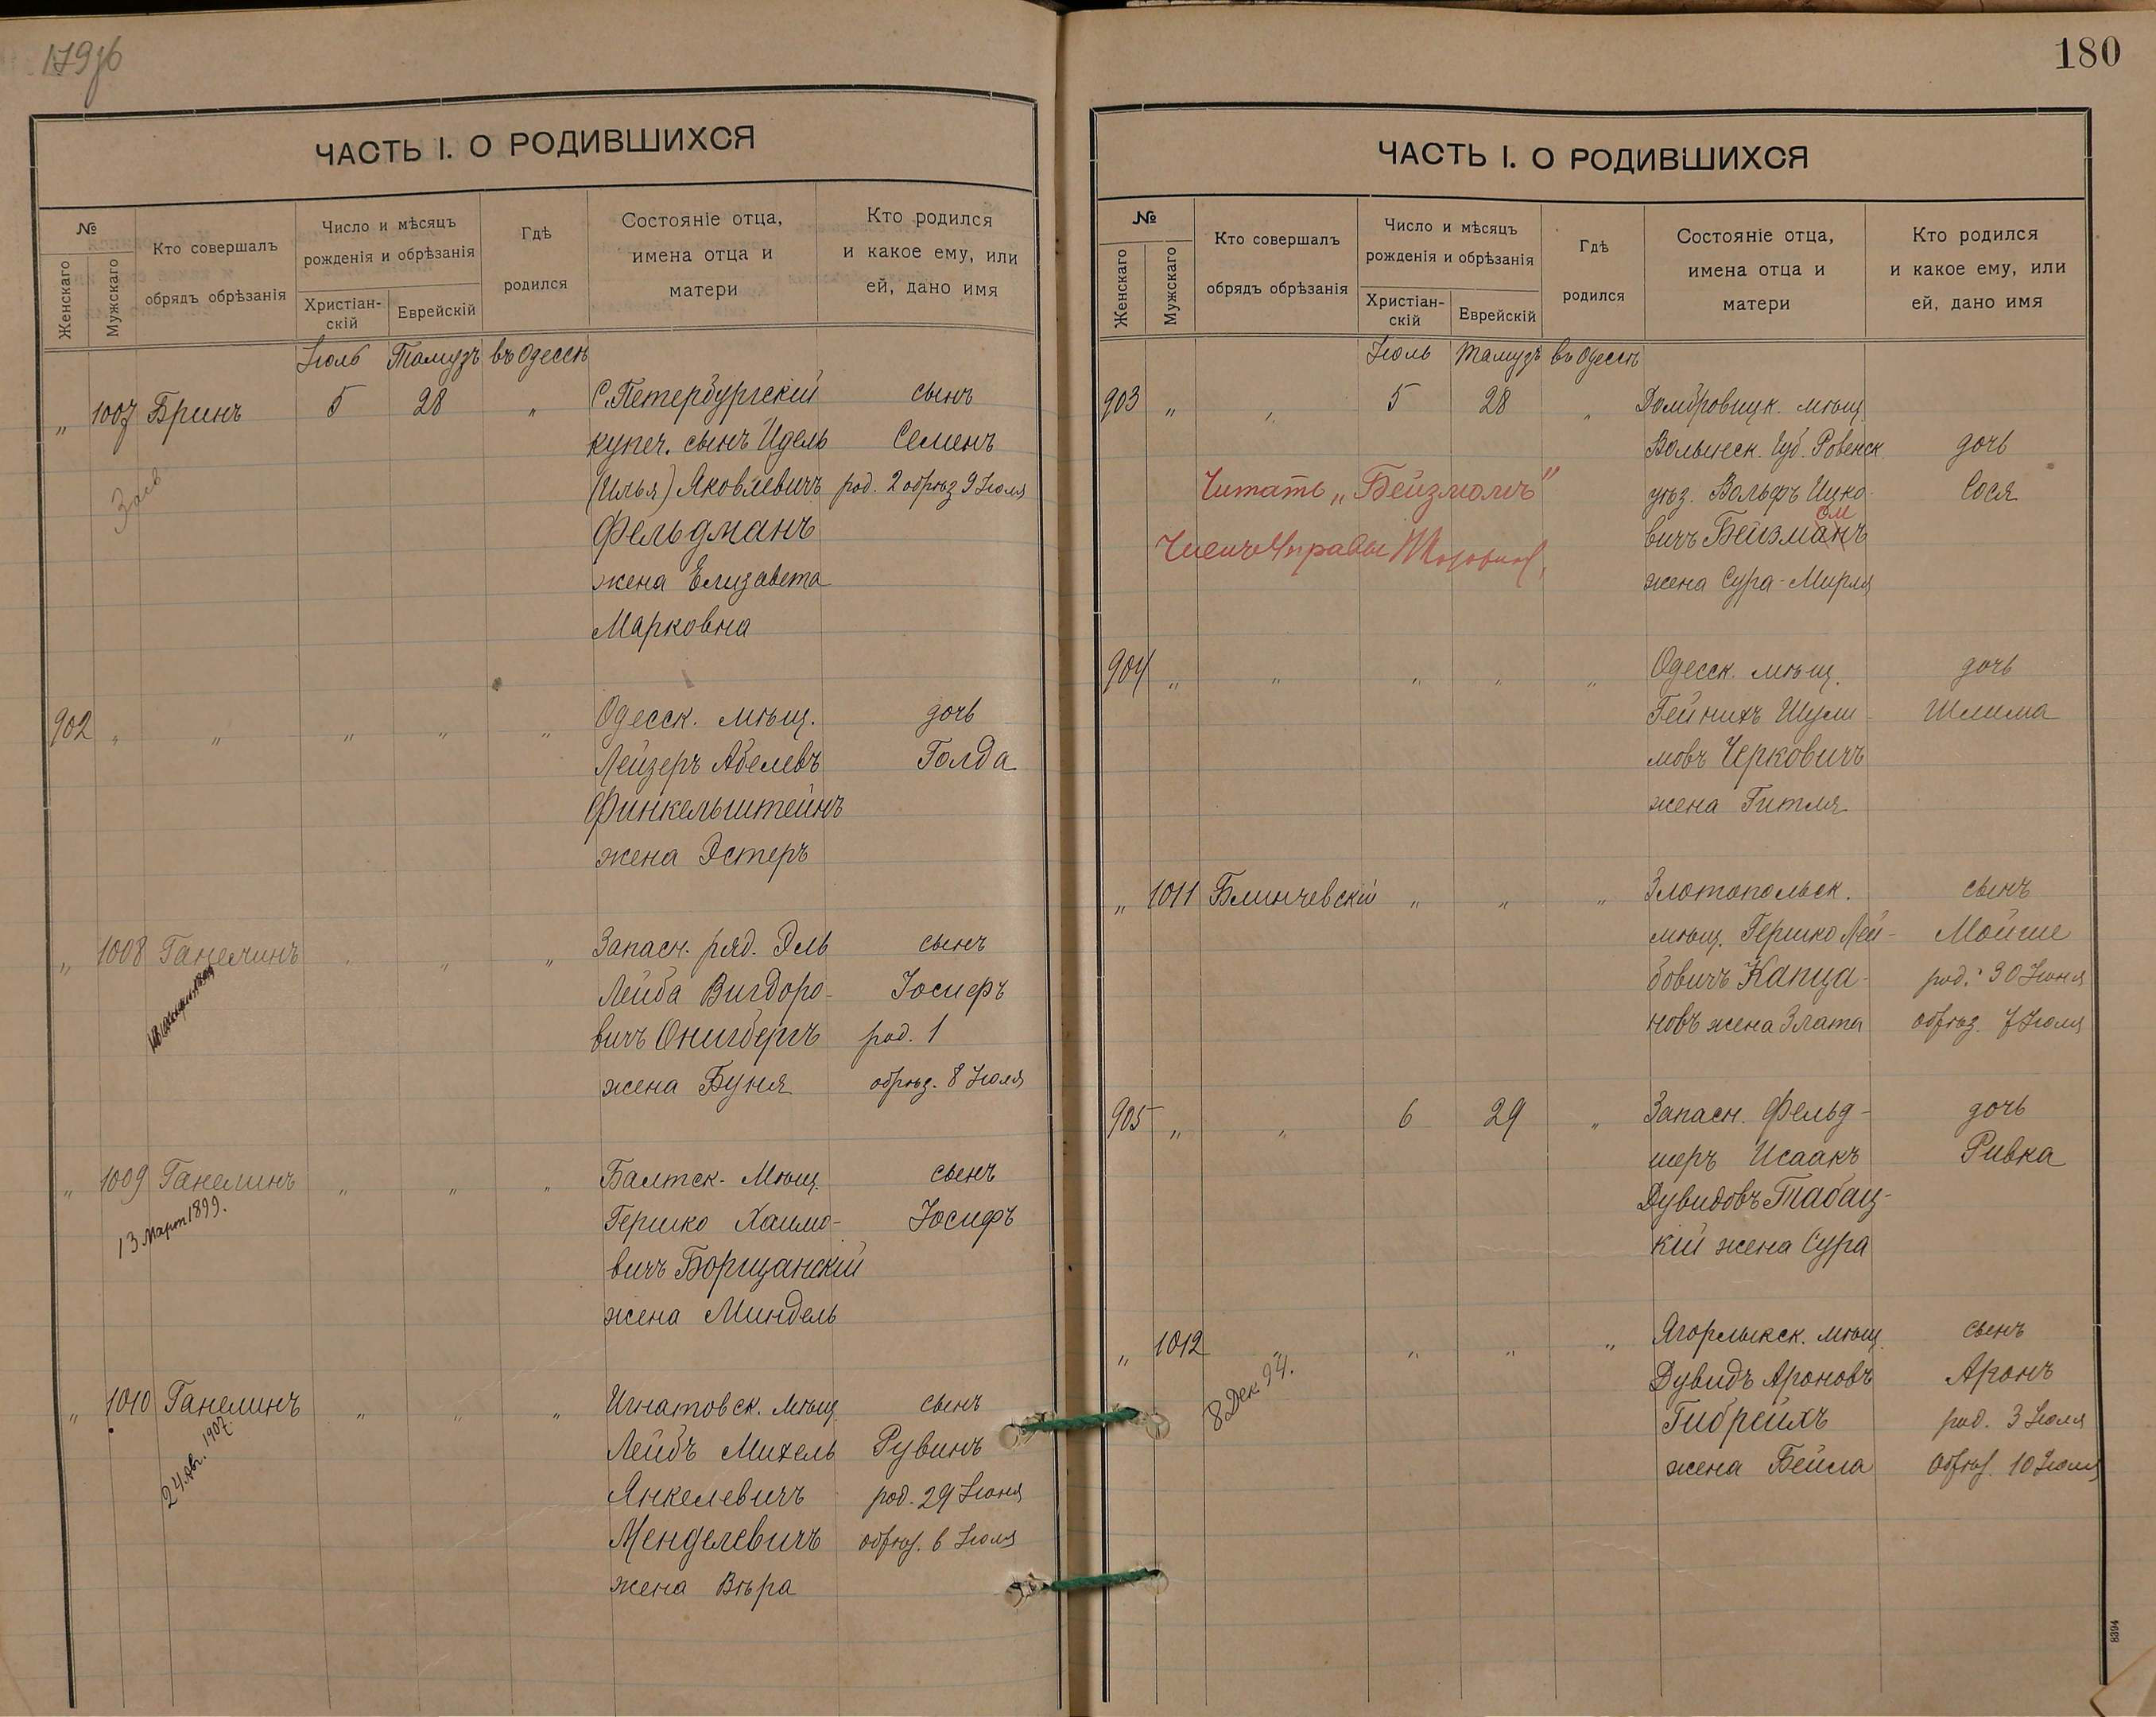 179 об
ЧАСТЬ I. О РОДИВШИХСЯ
№
Женскаго
Мужскаго
Кто совершалъ
обрядъ обрѣзанія
Число и мѣсяцъ
рожденія и обрѣзанія
Христіан-
скій
Еврейскій
Гдѣ
родился
Состояніе отца,
имена отца и
матери
Кто родился
и какое ему, или
ей, дано имя
Іюль Тамузъ въ Одессѣ
„ 1007 Бринъ 5 28 „ С.Петербургскій сынъ
купеч. сынъ Идель Семенъ
(Илья) Яковлевичъ род. 2 обрѣз 9 Іюля
Фельдманъ
жена Елизавета
Марковна
902 „ „ „ „ „ Одесск. мѣщ. дочь
Лейзеръ Абелевъ Голда
Финкельштейнъ
жена Эстеръ
„ 1008 Ганелинъ „ „ „ Запасн. ряд. Эль сынъ
Лейба Вигдоро- Іосифъ
вичъ Онигбергъ род. 1
жена Буня обрѣз. 8 Іюля
„ 1009 Ганелинъ „ „ „ Балтск. Мѣщ. сынъ
13 Март 1899.
Гершко Хаимо- Іосифъ
вичъ Борщанскій
жена Миндель
„ 1010 Ганелинъ „ „ „ Игнатовск. мѣщ. сынъ
24 Авг. 1907
Лейбъ Михель Рувинъ
Янкелевичъ род. 29 Іюня
Менделевичъ обрѣз. 6 Іюля
жена Вѣра
180
ЧАСТЬ I. О РОДИВШИХСЯ
№
Женскаго
Мужскаго
Кто совершалъ
обрядъ обрѣзанія
Число и мѣсяцъ
рожденія и обрѣзанія
Христіан-
скій
Еврейскій
Гдѣ
родился
Состояніе отца,
имена отца и
матери
Кто родился
и какое ему, или
ей, дано имя
Іюль Тамузъ въ Одессѣ
903 „ „ 5 28 „ Домбровицк. мѣщ.
Волынск. Губ. Ровенск. дочь
Читать „Бейзмомъ"
уѣз. Вольфъ Ицко- Сося
ом
вичъ Бейзманъ
Членъ Управы
жена Сура-Мирля
904 „ „ „ „ „ Одесск. мѣщ. дочь
Гейнихъ Шули- Шлима
мовъ Черковичъ
жена Гитля
„ 1011 Блинчевскій „ „ „ Златопольск. сынъ
мѣщ. Гершко Лей- Мойше
бовичъ Капца- род. 30 Іюня
новъ жена Злата обрѣз. 7 Іюля
905 „ „ 6 29 „ Запасн. Фельд- дочь
шеръ Исаакъ Ривка
Дувидовъ Табац-
кій жена Сура
„ 1012 „ „ „ „ Ягорлыкск. мѣщ. сынъ
8 Дек. 94.
Дувидъ Ароновъ Аронъ
Гибрейхъ род. 3 Іюля
жена Бейла обрѣз. 10 Іюля
8394